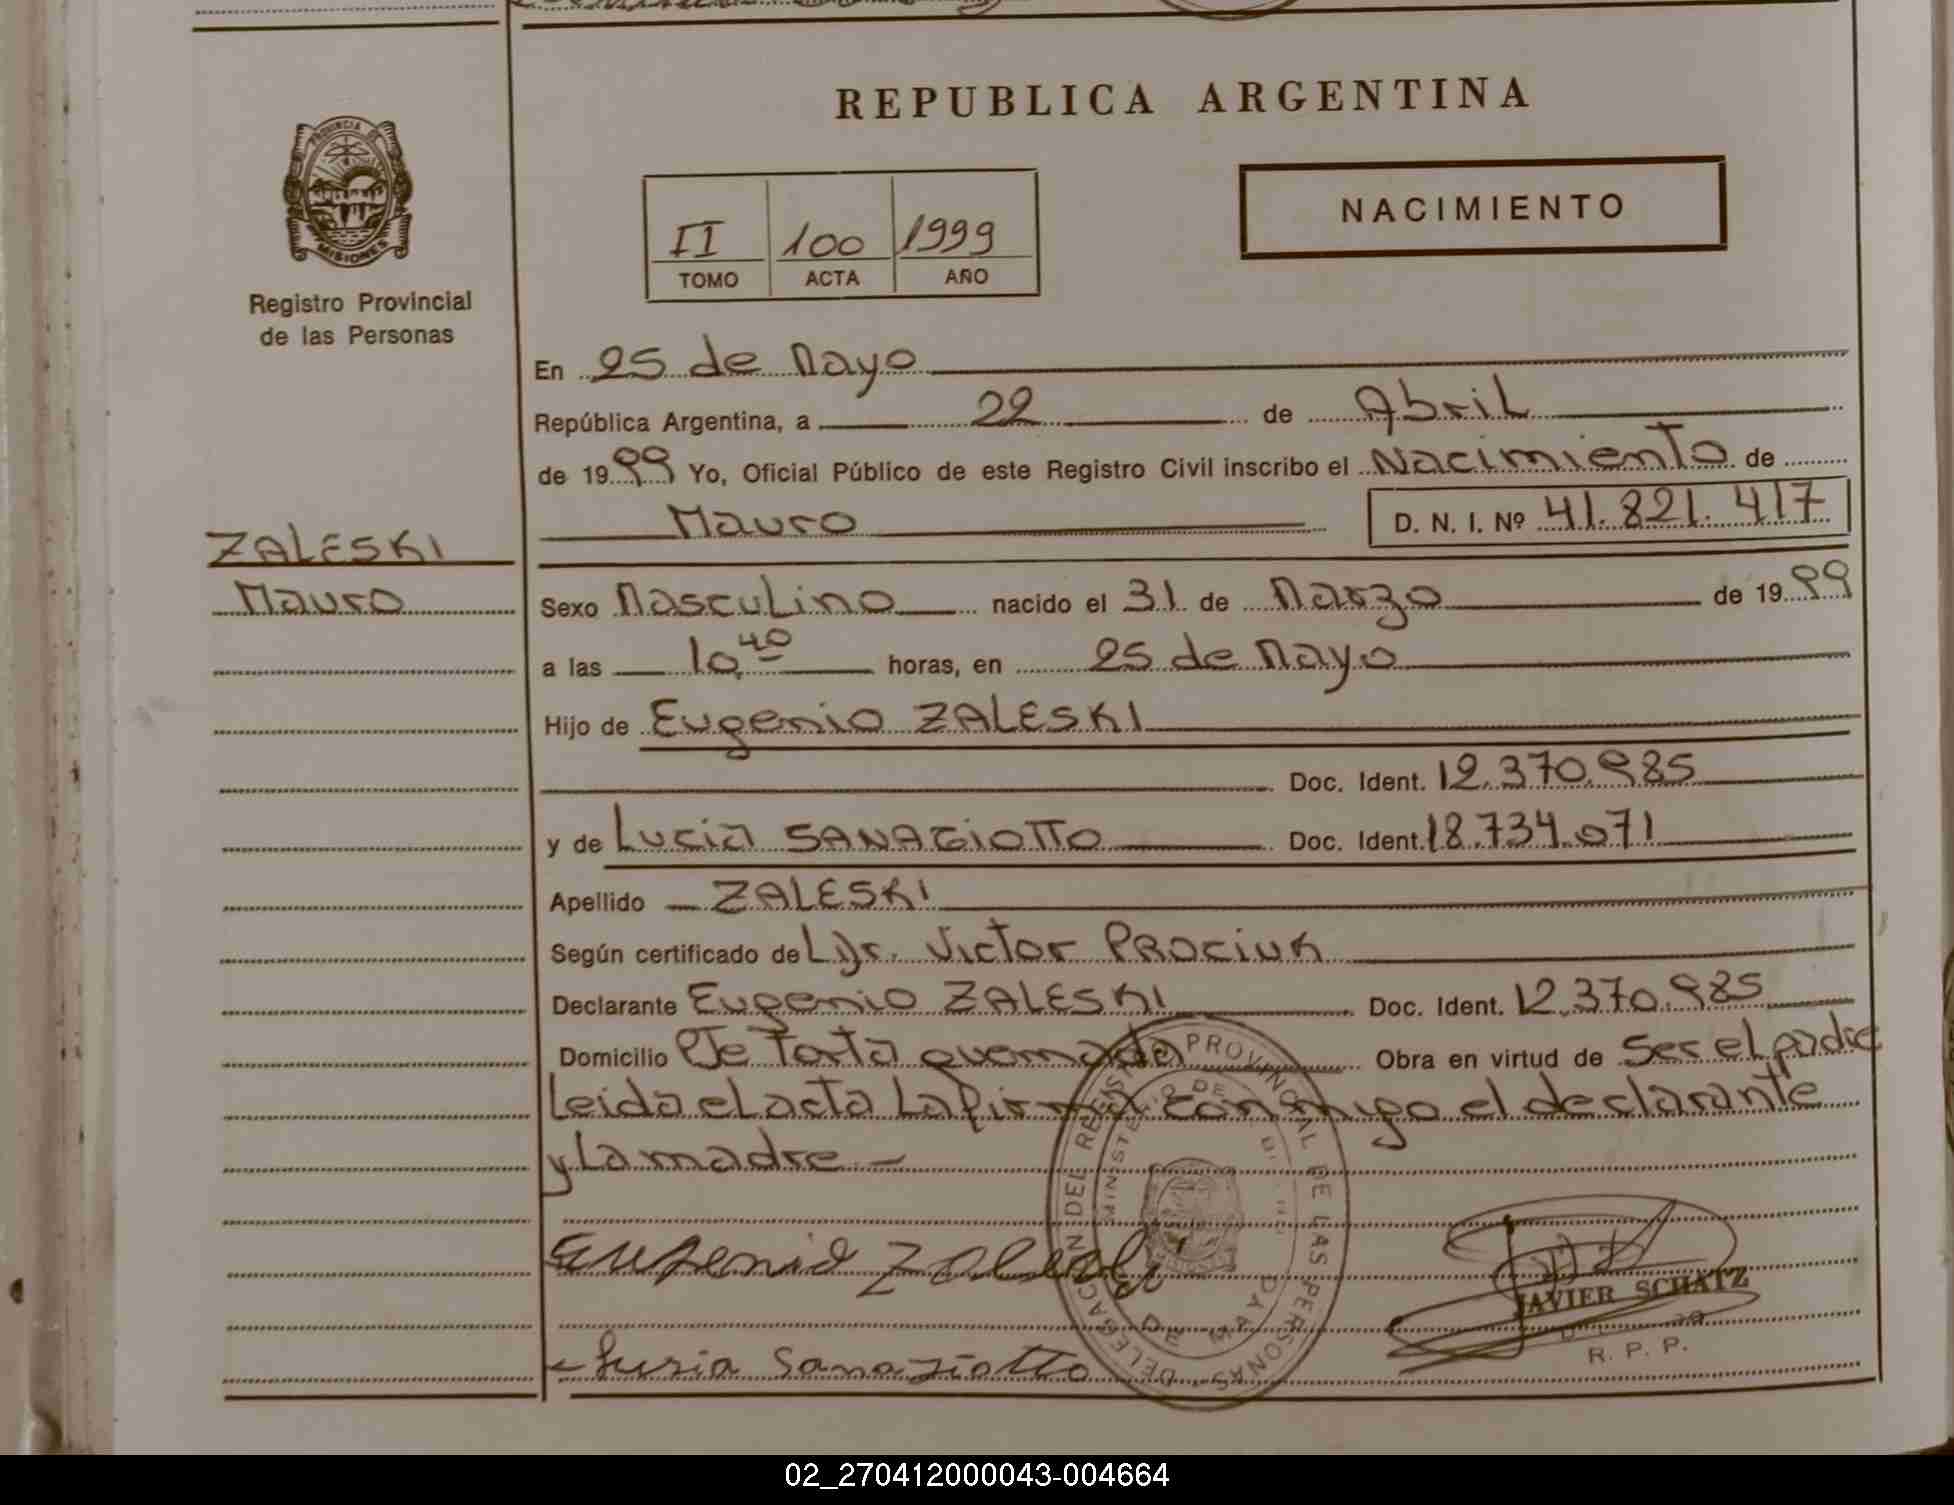 REPUBLICA ARGENTINA
PROVINCIA DE
MISIONES
Registro Provincial
de las Personas
NACIMIENTO
II 100 1999
TOMO ACTA AÑO
En 25 de Mayo
República Argentina, a 22 de Abril
de 1999 Yo, Oficial Público de este Registro Civil inscribo el Nacimiento de
Mauro D. N. I. Nº 41.821.417
ZALESKI
Mauro
Sexo Masculino nacido el 31 de Marzo de 1999
a las 10,40 horas, en 25 de Mayo
Hijo de Eugenio ZALESKI
Doc. Ident. 12.370.985
y de Lucia SANAZIOTTO Doc. Ident. 18.734.071
Apellido ZALESKI
Según certificado de L Dr. Victor PROCIUK
Declarante Eugenio ZALESKI Doc. Ident. 12.370.985
Domicilio Pje Torta quemada Obra en virtud de ser el padre
leida el acta la firma conmigo el declarante
y la madre -
Eugenio Zaleski
Lusia Sanaziotto
DELEGACION DEL REGISTRO PROVINCIAL DE LAS PERSONAS
DE MAYO
JAVIER SCHATZ
R. P. P.
02_270412000043-004664